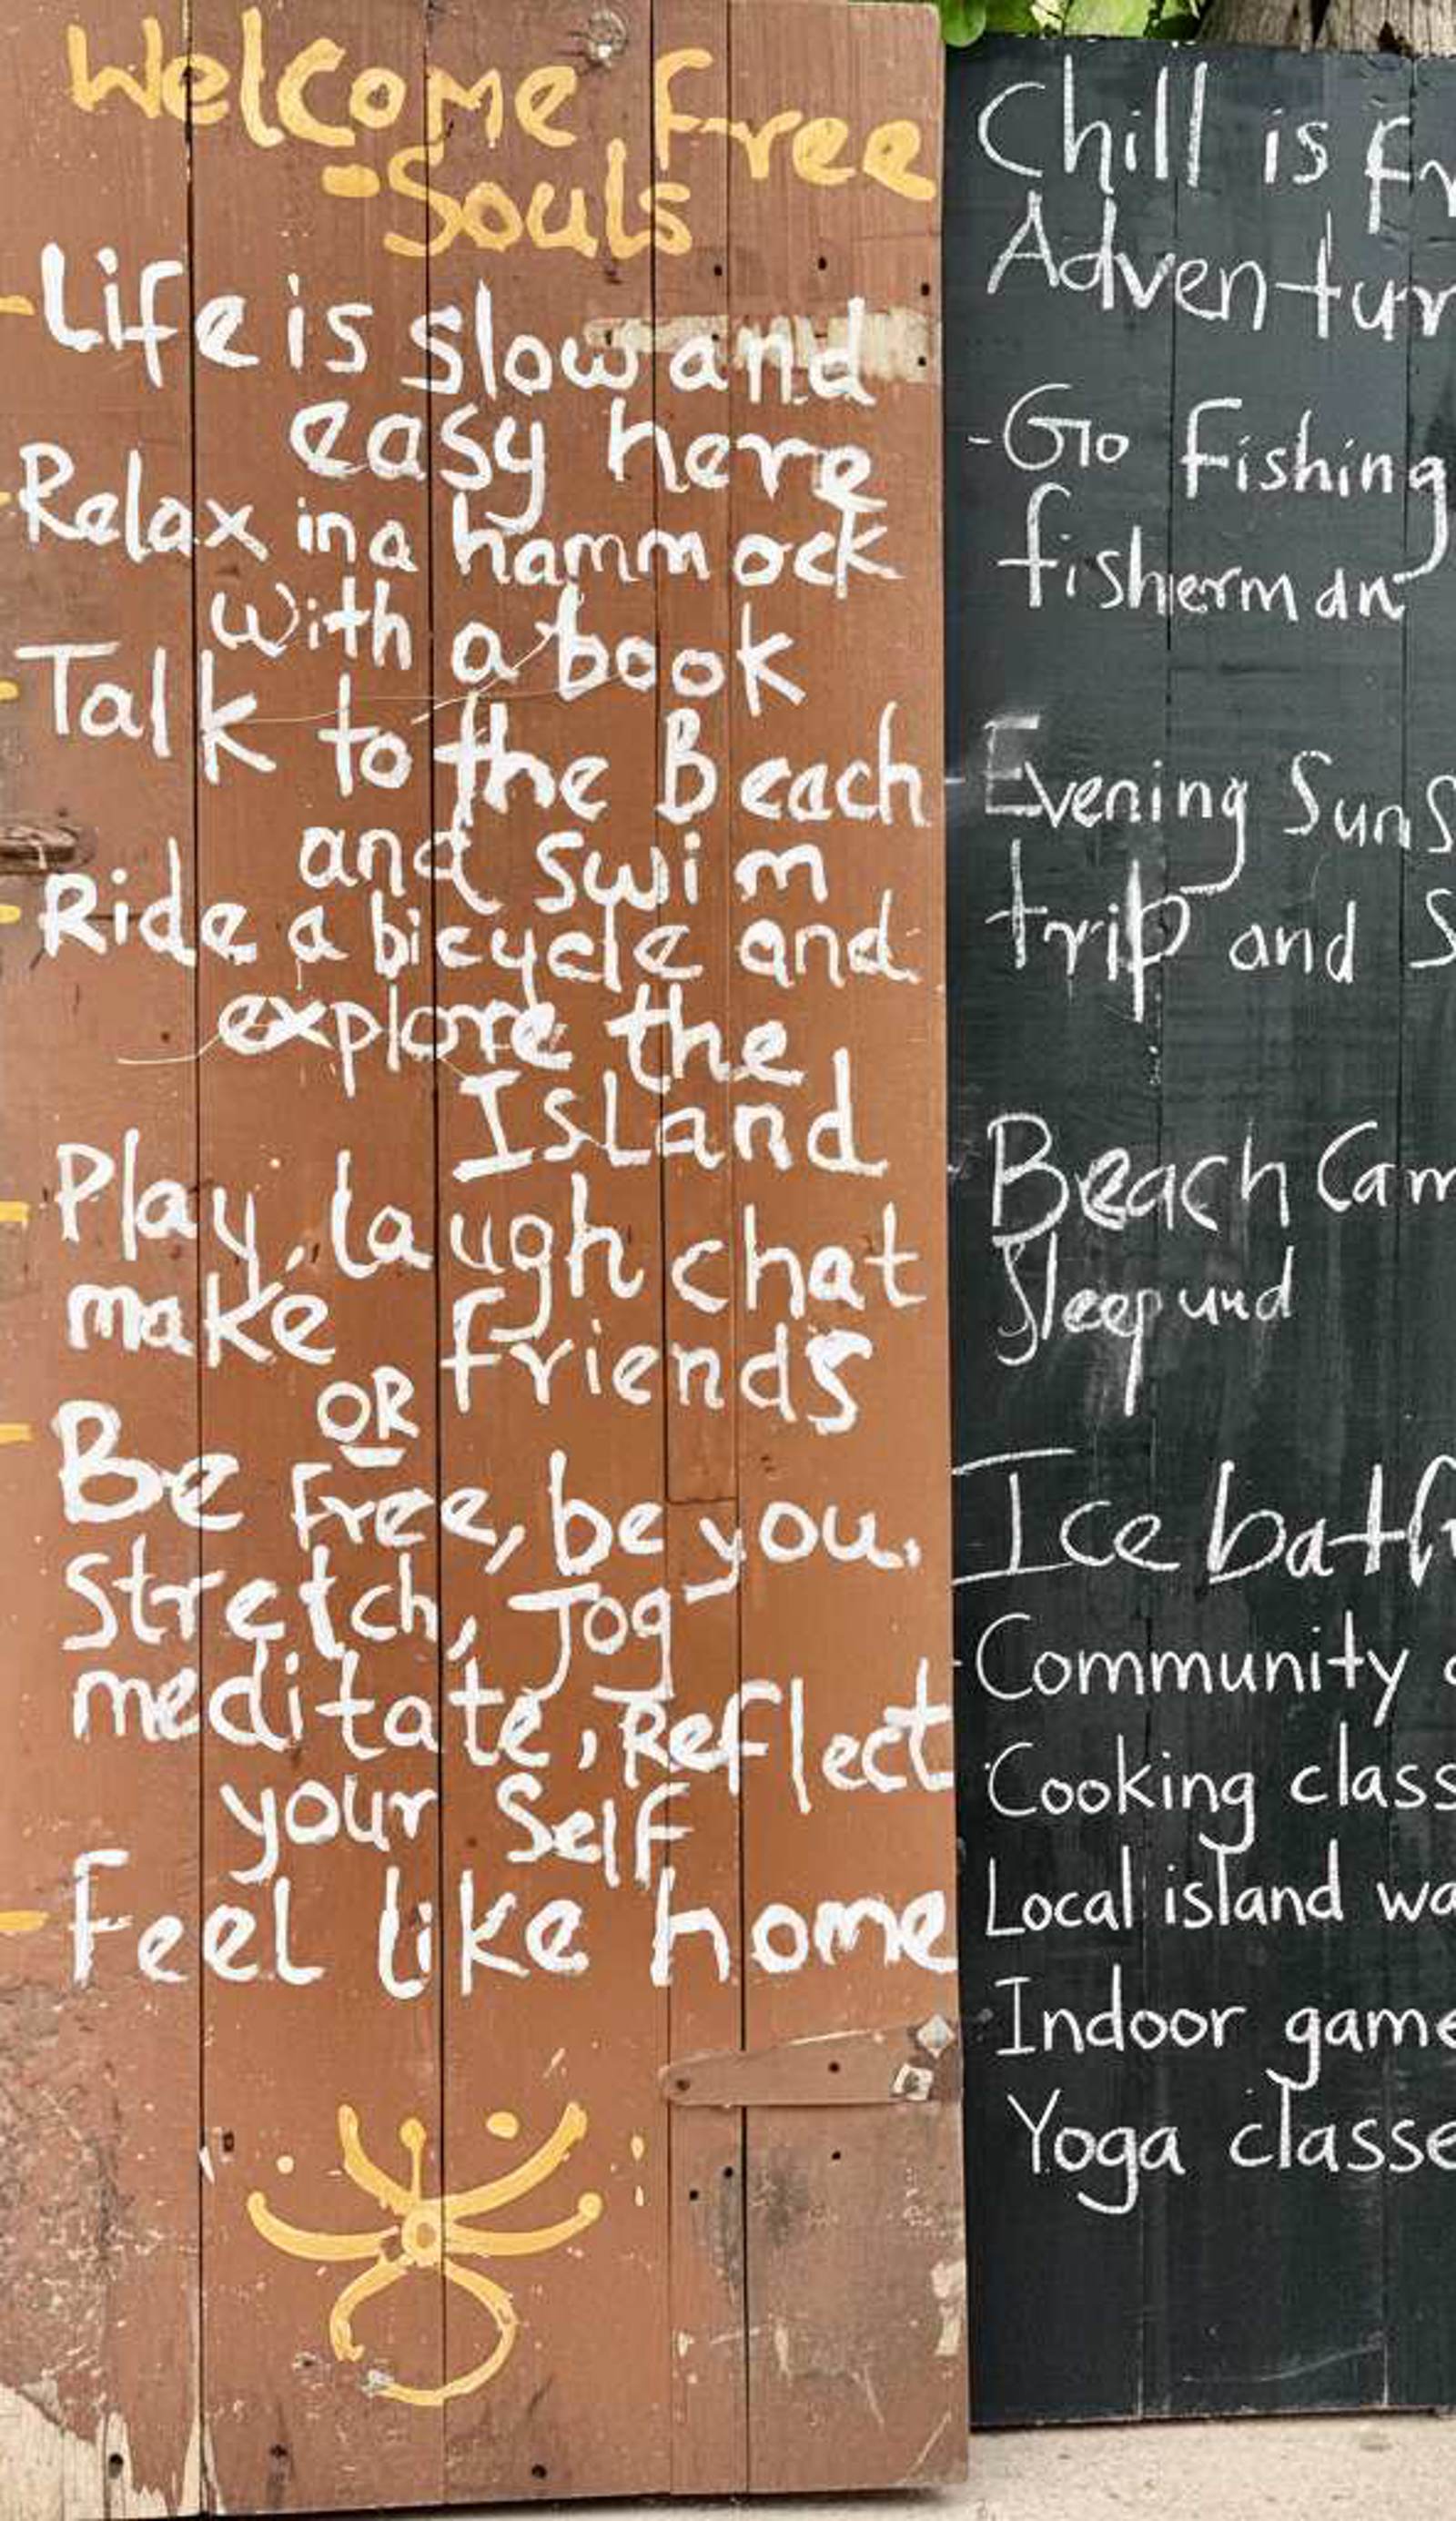 Welcome Free
-Souls
-Life is slow and
easy here
-Relax in a hammock
with a book
-Talk to the Beach
and swim
-Ride a bicycle and
explore the
Island
-Play, laugh chat
make friends
OR
-Be Free, be you.
Stretch, Jog
meditate, Reflect
your Self
-Feel like home
Chill is Fr
Adventur
-Go Fishing
fisherman
-Evening Suns
trip and S
-Beach Cam
Sleep und
Ice bath
-Community
Cooking class
Local island wa
Indoor game
Yoga classe